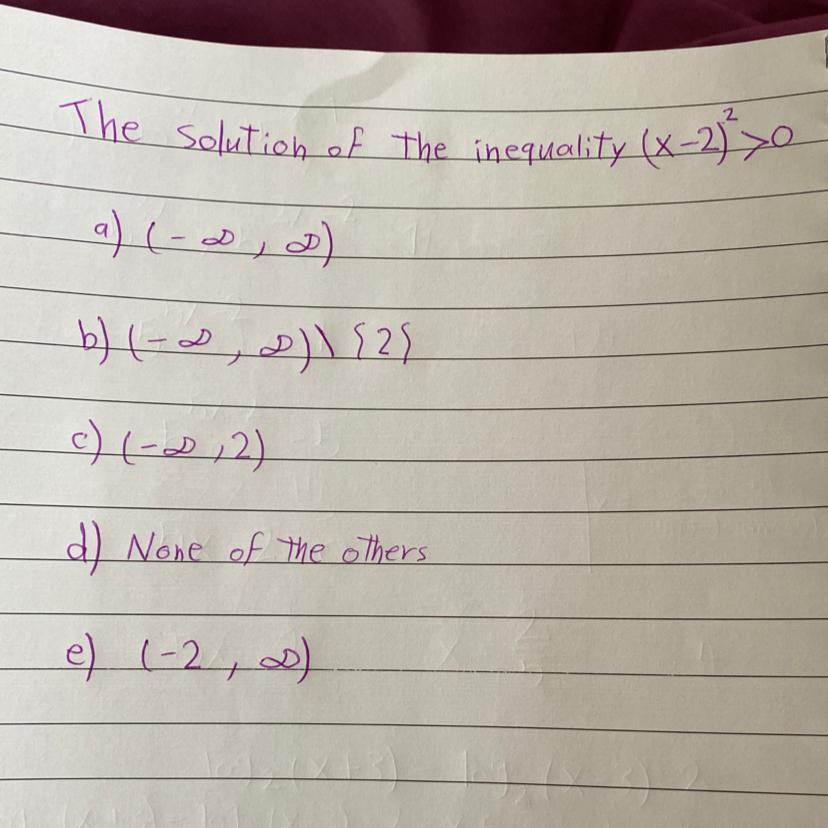 The solution of the inequality (x-2)²>0
a) (-∞, ∞)
b) (-∞, ∞)\{2}
c) (-∞,2)
d) None of the others
e) (-2, ∞)